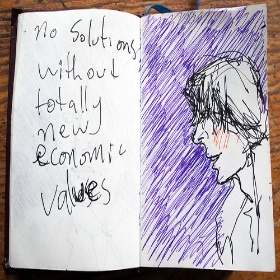 no Solutions
without
totally
new
economic
values